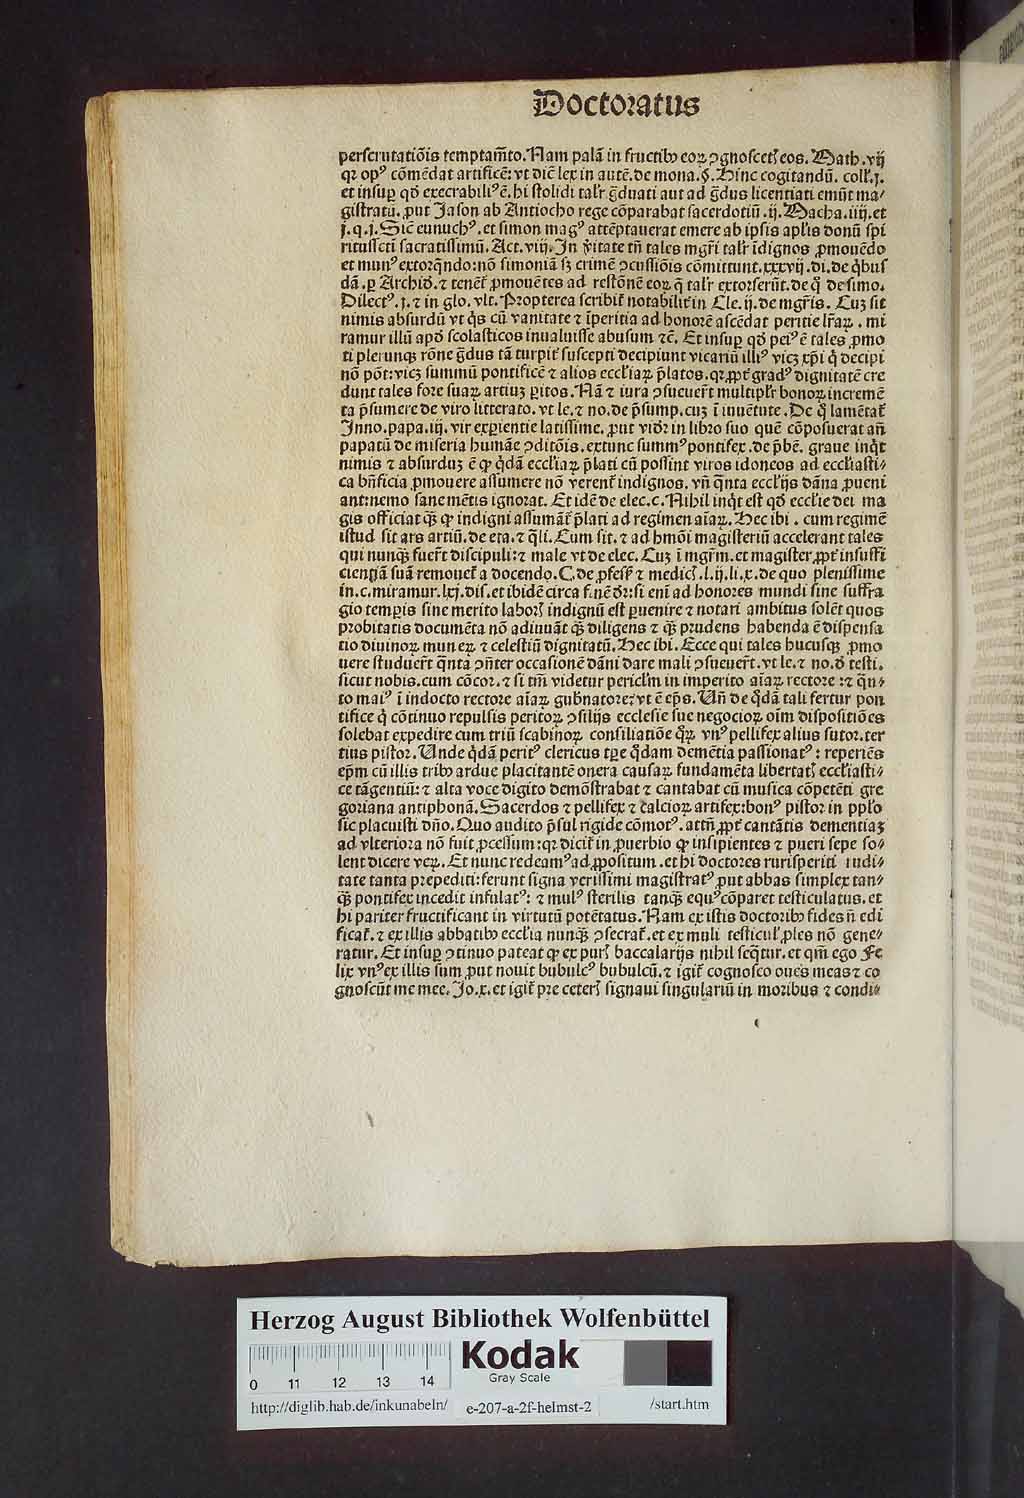 Doctoratus
perscrutatiõis temptam̃to. Nam palã in fructibꝰ eoꝝ ↄgnoscet̃ eos. Math. vij
qꝛ opꝰ cõmẽdat artificẽ: vt dic̃ lex in autẽ. de mona. §. Hinc cogitandũ. coll'. j.
et insuꝑ qḋ execrabiliꝰ ẽ. hi stolidi tal'r g̃duati aut ad g̃dus licentiati emũt ma-
gistratũ. ꝓut Jason ab Antiocho rege cõparabat sacerdotiũ. ij. Macha. iiij. et
j. q. j. Sic̃ eunuchꝰ. et simon magꝰ attẽptauerat emere ab ipsis apl'is donũ spi
ritussct̃i sacratissimũ. Act. viij. In v̾itate tñ tales mgr̃i tal'r ĩdignos ꝓmouẽdo
et munꝰ extorq̃ndo: nõ simoniã sꝫ crimẽ ↄcussiõis cõmittunt. xxxvij. di. de q̇bus
dã. ꝑ Archiḋ. ⁊ tenẽt̃ ꝓmouẽtes ad restõnẽ eoꝝ q̃ tal'r extorserũt. de q̇ de simo.
Dilectꝰ. j. ⁊ in glo. vlt. Propterea scribit̃ notabilit̃ in Cle. ij. de mgr̃is. Cuꝫ sit
nimis absurdũ vt q̇s cũ vanitate ⁊ ĩperitia ad honorẽ ascẽdat peritie lr̃aꝝ. mi
ramur illũ apḋ scolasticos inualuisse abusum ⁊c̃. Et insuꝑ qḋ peiꝰ ẽ tales ꝓmo
ti plerunqꝫ rõne g̃dus tã turpit̃ suscepti decipiunt vicariũ illiꝰ vicꝫ xp̃i q̇ decipi
nõ põt: vicꝫ summũ pontificẽ ⁊ alios eccl'iaꝝ p̃latos. qꝛ ꝓpt̃ gradꝰ dignitatẽ cre
dunt tales fore suaꝝ artiuꝫ ꝑitos. Nã ⁊ iura ↄsueuer̃t multipl'r bonoꝝ incremẽ
ta p̃sumere de viro litterato. vt le. ⁊ no. de p̃sump. cuꝫ ĩ iuuẽtute. De q̇ lamẽtat̃
Inno. papa. iij. vir experientie latissime. ꝓut vidr̃ in libro suo quẽ cõposuerat añ
papatũ de miseria humãe ↄditõis. extunc summꝰ pontifex. de p̃bẽ. graue inq̇t
nimis ⁊ absurduꝫ ẽ ꝙ q̇dã eccl'iaꝝ p̃lati cũ possint viros idoneos ad eccl'iasti-
ca bñficia ꝓmouere assumere nõ verent̃ indignos. vñ q̃nta eccl'ijs dãna ꝓueni
ant: nemo sane mẽtis ignorat. Et idẽ de elec. c. Nihil inq̇t est qḋ eccl'ie dei ma
gis officiat q̃ꝫ ꝙ indigni assumãt̃ p̃lati ad regimen aĩaꝝ. Hec ibi. cum regimẽ
istud sit ars artiũ. de eta. ⁊ q̃li. Cum sit. ⁊ ad hmõi magisteriũ accelerant tales
qui nunqꝫ fuer̃t discipuli: ⁊ male vt de elec. Cuꝫ ĩ mgr̃m. et magister ꝓpt̃ insuffi
cientiã suã remouet̃ a docendo. C. de ꝓfess' ⁊ medic'. l. ij. li. x. de quo plenissime
in. c. miramur. lxj. dis. et ibidẽ circa finẽ dr̃: si eni ad honores mundi sine suffra
gio temꝑis sine merito labor' indignũ est ꝑuenire ⁊ notari ambitus solẽt quos
probitatis documẽta nõ adiuuãt q̃ꝫ diligens ⁊ q̃ꝫ prudens habenda ẽ dispensa
tio diuinoꝝ muneꝝ ⁊ celestiũ dignitatũ. Hec ibi. Ecce qui tales hucusqꝫ ꝓmo
uere studuer̃t q̃nta ↄñter occasionẽ dãni dare mali ↄsueuer̃t. vt le. ⁊ no. ḋ testi.
sicut nobis. cum cõcor. ⁊ si tm̃ videtur pericl'm in imperito aĩaꝝ rectore: ⁊ q̃n-
to maiꝰ ĩ indocto rectore aĩaꝝ gub̃natore? vt ẽ ep̃s. Uñ de q̇dã tali fertur pon
tifice q̇ cõtinuo repulsis peritoꝝ ↄsilijs ecclesie sue negocioꝝ oĩm dispositiões
solebat expedire cum triũ scabinoꝝ consiliatiõe qꝝ vnꝰ pellifex alius sutor. ter
tius pistor. Unde q̇dã peritꝰ clericus tp̃e q̇dam demẽtia passionatꝰ: reperiẽs
ep̃m cũ illis tribꝰ ardue placitantẽ onera causaꝝ fundamẽta libertat' eccl'iasti-
ce tãgentiũ: ⁊ alta voce digito demõstrabat ⁊ cantabat cũ musica cõpetẽti gre
goriana antiphonã. Sacerdos ⁊ pellifex ⁊ calcioꝝ artifex: bonꝰ pistor in ppl'o
sic placuisti dño. Quo audito p̃sul rigide cõmotꝰ. attñ ꝓpt̃ cantãtis dementiaꝫ
ad vlteriora nõ fuit ꝓcessum: qꝛ dicit̃ in ꝓuerbio ꝙ insipientes ⁊ pueri sepe so-
lent dicere veꝝ. Et nunc redeamꝰ ad ꝓpositum. et hi doctores rurisperiti rudi-
tate tanta prepediti: ferunt signa verissimi magistratꝰ ꝓut abbas simplex tan-
q̃ꝫ pontifex incedit infulatꝰ: ⁊ mulꝰ sterilis tanqꝫ equꝰ cõparet testiculatus. et
hi pariter fructificant in virtutũ potẽtatus. Nam ex istis doctoribꝰ fides ñ edi
ficat̃. ⁊ ex illis abbatibꝰ eccl'ia nunqꝫ ↄsecrat̃. et ex muli testicul' ꝓles nõ gene-
ratur. Et insuꝑ ↄtinuo pateat ꝙ ex pur' baccalarijs nihil seq̃tur. et qm̃ ego Fe
lix vnꝰ ex illis sum ꝓut nouit bubulcꝰ bubulcũ. ⁊ igit̃ cognosco oues meas ⁊ co
gnoscũt me mee. Jo. x. et igit̃ pre ceter' signaui singulariũ in moribus ⁊ condi-
Herzog August Bibliothek Wolfenbüttel
Kodak
Gray Scale
0 11 12 13 14
http://diglib.hab.de/inkunabeln/ e-207-a-2f-helmst-2 /start.htm